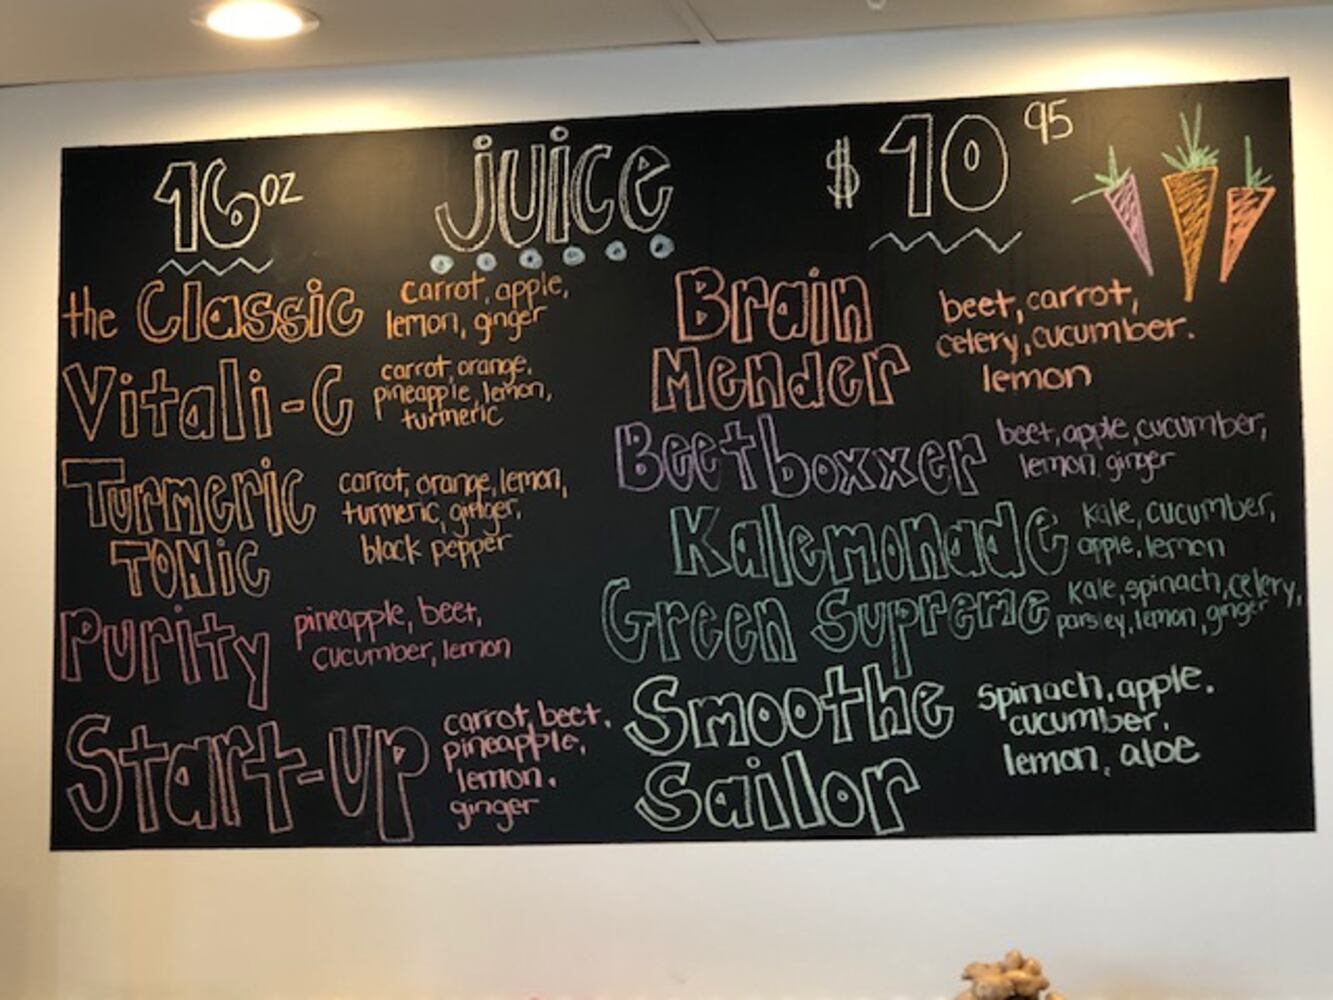 16 oz juice $10 95
the Classic carrot, apple,
lemon, ginger
Vitali-C carrot, orange,
pineapple, lemon,
turmeric
Turmeric
Tonic
carrot, orange, lemon,
turmeric, ginger,
black pepper
Purity
pineapple, beet,
cucumber, lemon
Start-up
carrot, beet,
pineapple,
lemon,
ginger
Brain
Mender
beet, carrot,
celery, cucumber.
lemon
Beetboxxer beet, apple, cucumber,
lemon, ginger
Kalemonade kale, cucumber,
apple, lemon
Green Supreme kale, spinach, celery,
parsley, lemon, ginger
Smoothe
Sailor
spinach, apple,
cucumber,
lemon, aloe